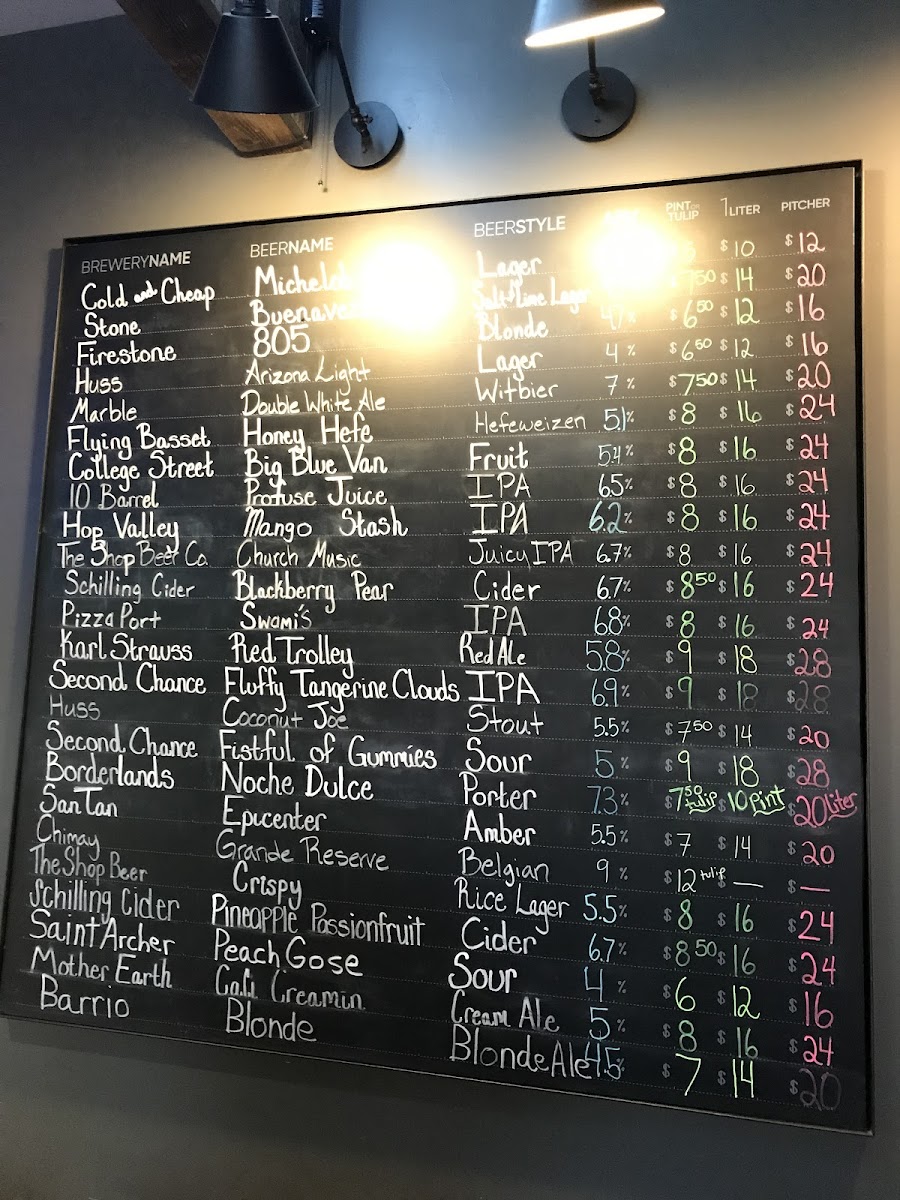 BREWERYNAME BEERNAME BEERSTYLE PINT OR TULIP 1 LITER PITCHER
Cold and Cheap Lager $10 $12
Stone Salt & Lime Lager $14 $20
Firestone 805 Blonde $6 50 $12 $16
Huss Arizona Light Lager 4% $6 50 $12 $16
Marble Double White Ale Witbier 7% $7 50 $14 $20
Flying Basset Honey Hefe Hefeweizen 5.1% $8 $16 $24
College Street Big Blue Van Fruit 5.4% $8 $16 $24
10 Barrel Profuse Juice IPA 6.5% $8 $16 $24
Hop Valley Mango Stash IPA 6.2% $8 $16 $24
The Shop Beer Co. Church Music Juicy IPA 6.7% $8 $16 $24
Schilling Cider Blackberry Pear Cider 6.7% $8 50 $16 $24
Pizza Port Swami's IPA 6.8% $8 $16 $24
Karl Strauss Red Trolley Red Ale 5.8% $9 $18 $28
Second Chance Fluffy Tangerine Clouds IPA 6.9% $9 $18 $28
Huss Coconut Joe Stout 5.5% $7 50 $14 $20
Second Chance Fistful of Gummies Sour 5% $9 $18 $28
Borderlands Noche Dulce Porter 7.3% $7 50 tulip $10 pint $20 liter
SanTan Epicenter Amber 5.5% $7 $14 $20
Chimay Grande Reserve Belgian 9% $12 tulip $— $—
The Shop Beer Crispy Rice Lager 5.5% $8 $16 $24
Schilling Cider Pineapple Passionfruit Cider 6.7% $8 50 $16 $24
Saint Archer Peach Gose Sour 4% $6 $12 $16
Mother Earth Cali Creamin Cream Ale 5% $8 $16 $24
Barrio Blonde Blonde Ale 4.5% $7 $14 $20